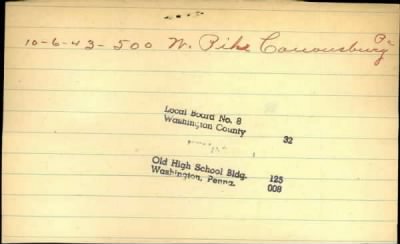 10-6-43-500 W. Pike Canonsburg Pa
Local Board No. 8
Washington County 32
Old High School Bldg. 125
Washington, Penna. 008